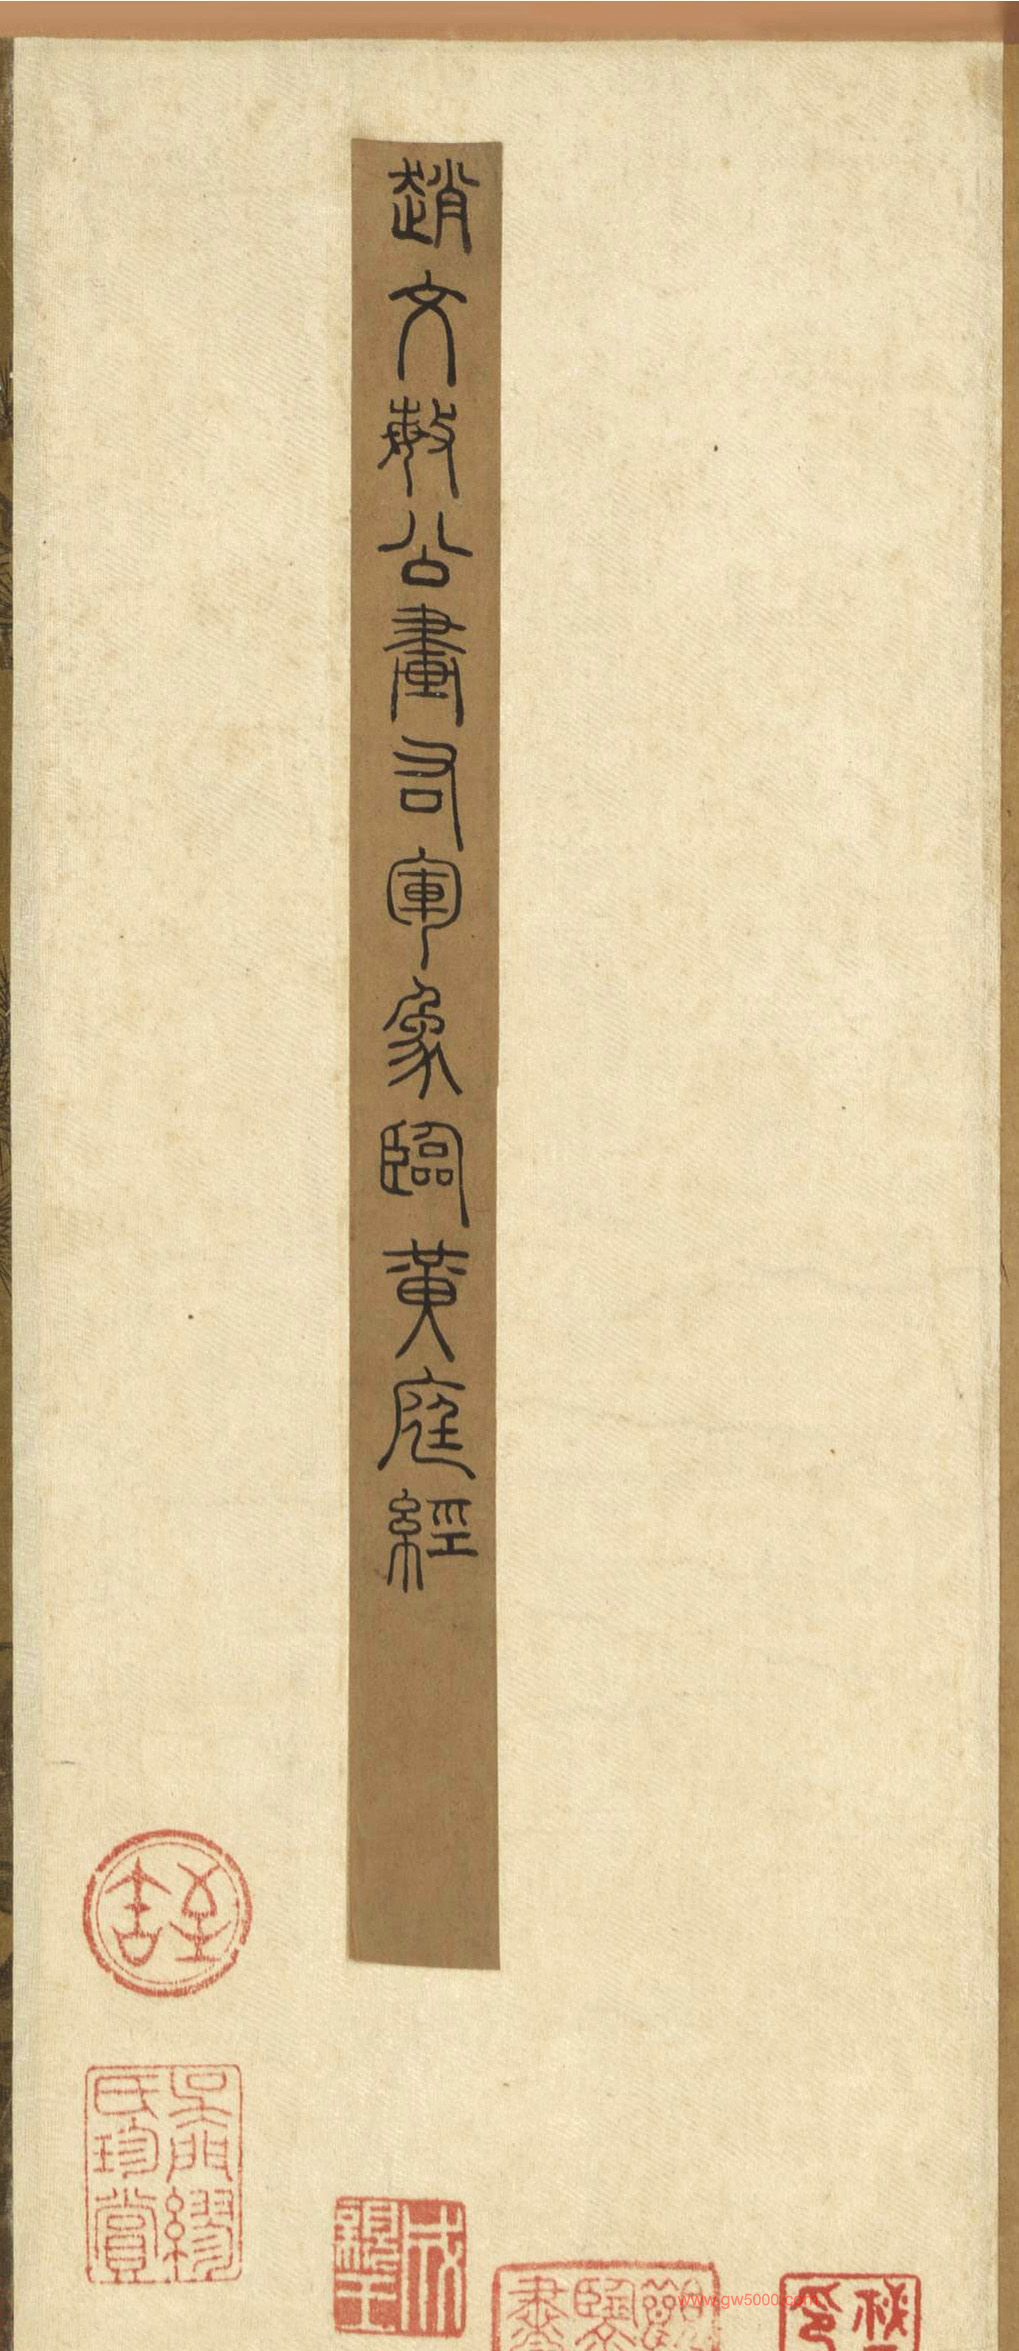 趙文敏公畫右軍象臨黃庭經
吳門繆
氏珍賞
www.gw5000.com